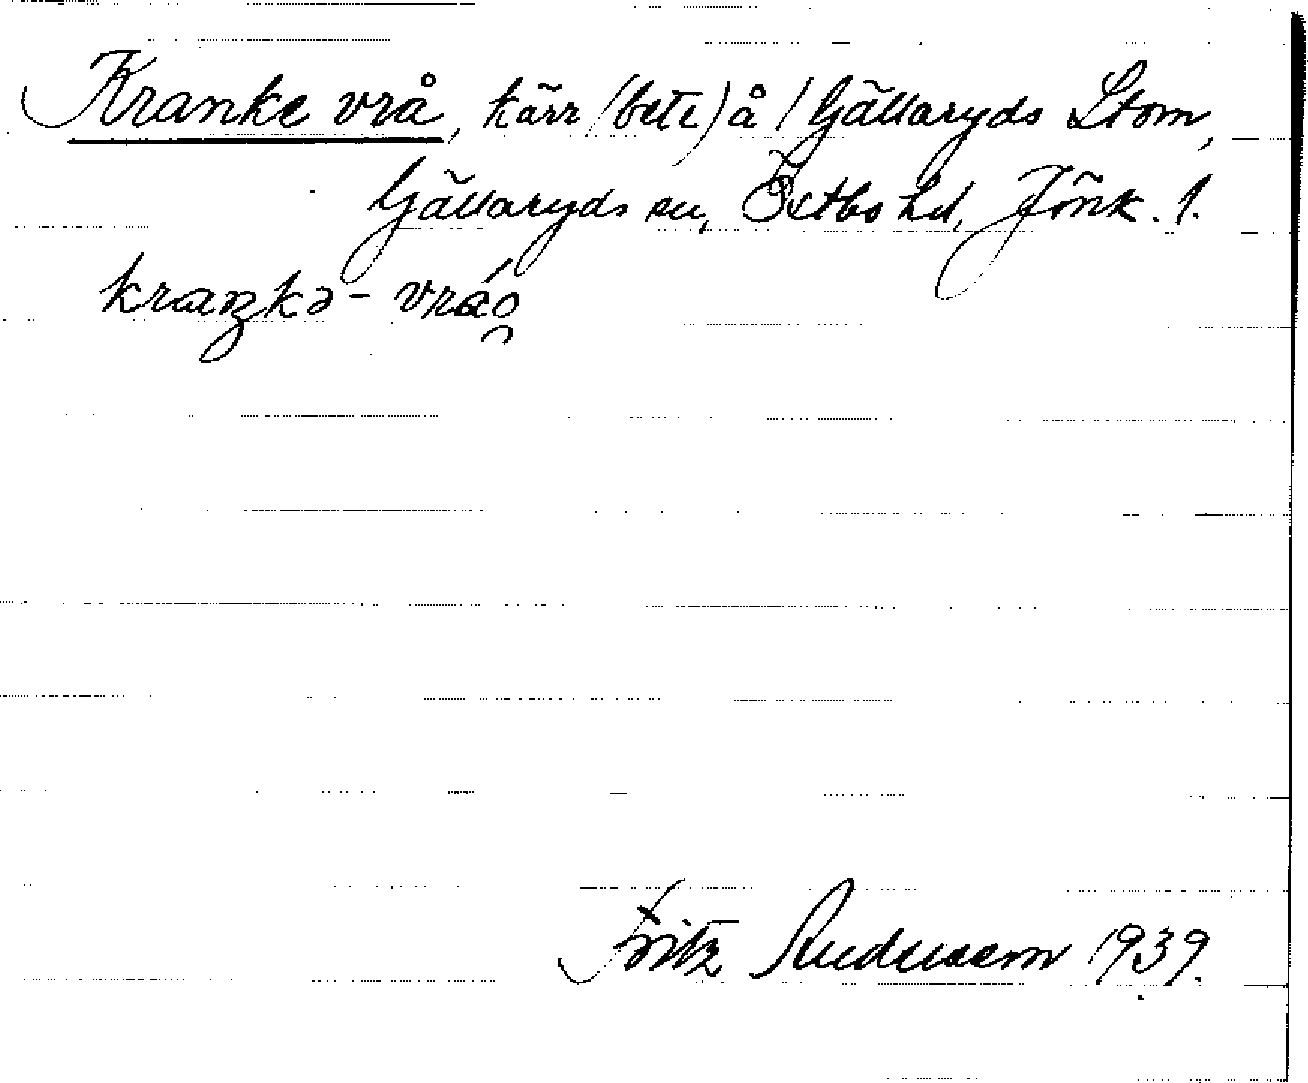 Kranke vrå, kärr (bete) å / Gällaryds Stom,
Gällaryds sn, Östbo hd, Jönk. l.
kraŋkə - vrǻǫ
Fritz 1939.